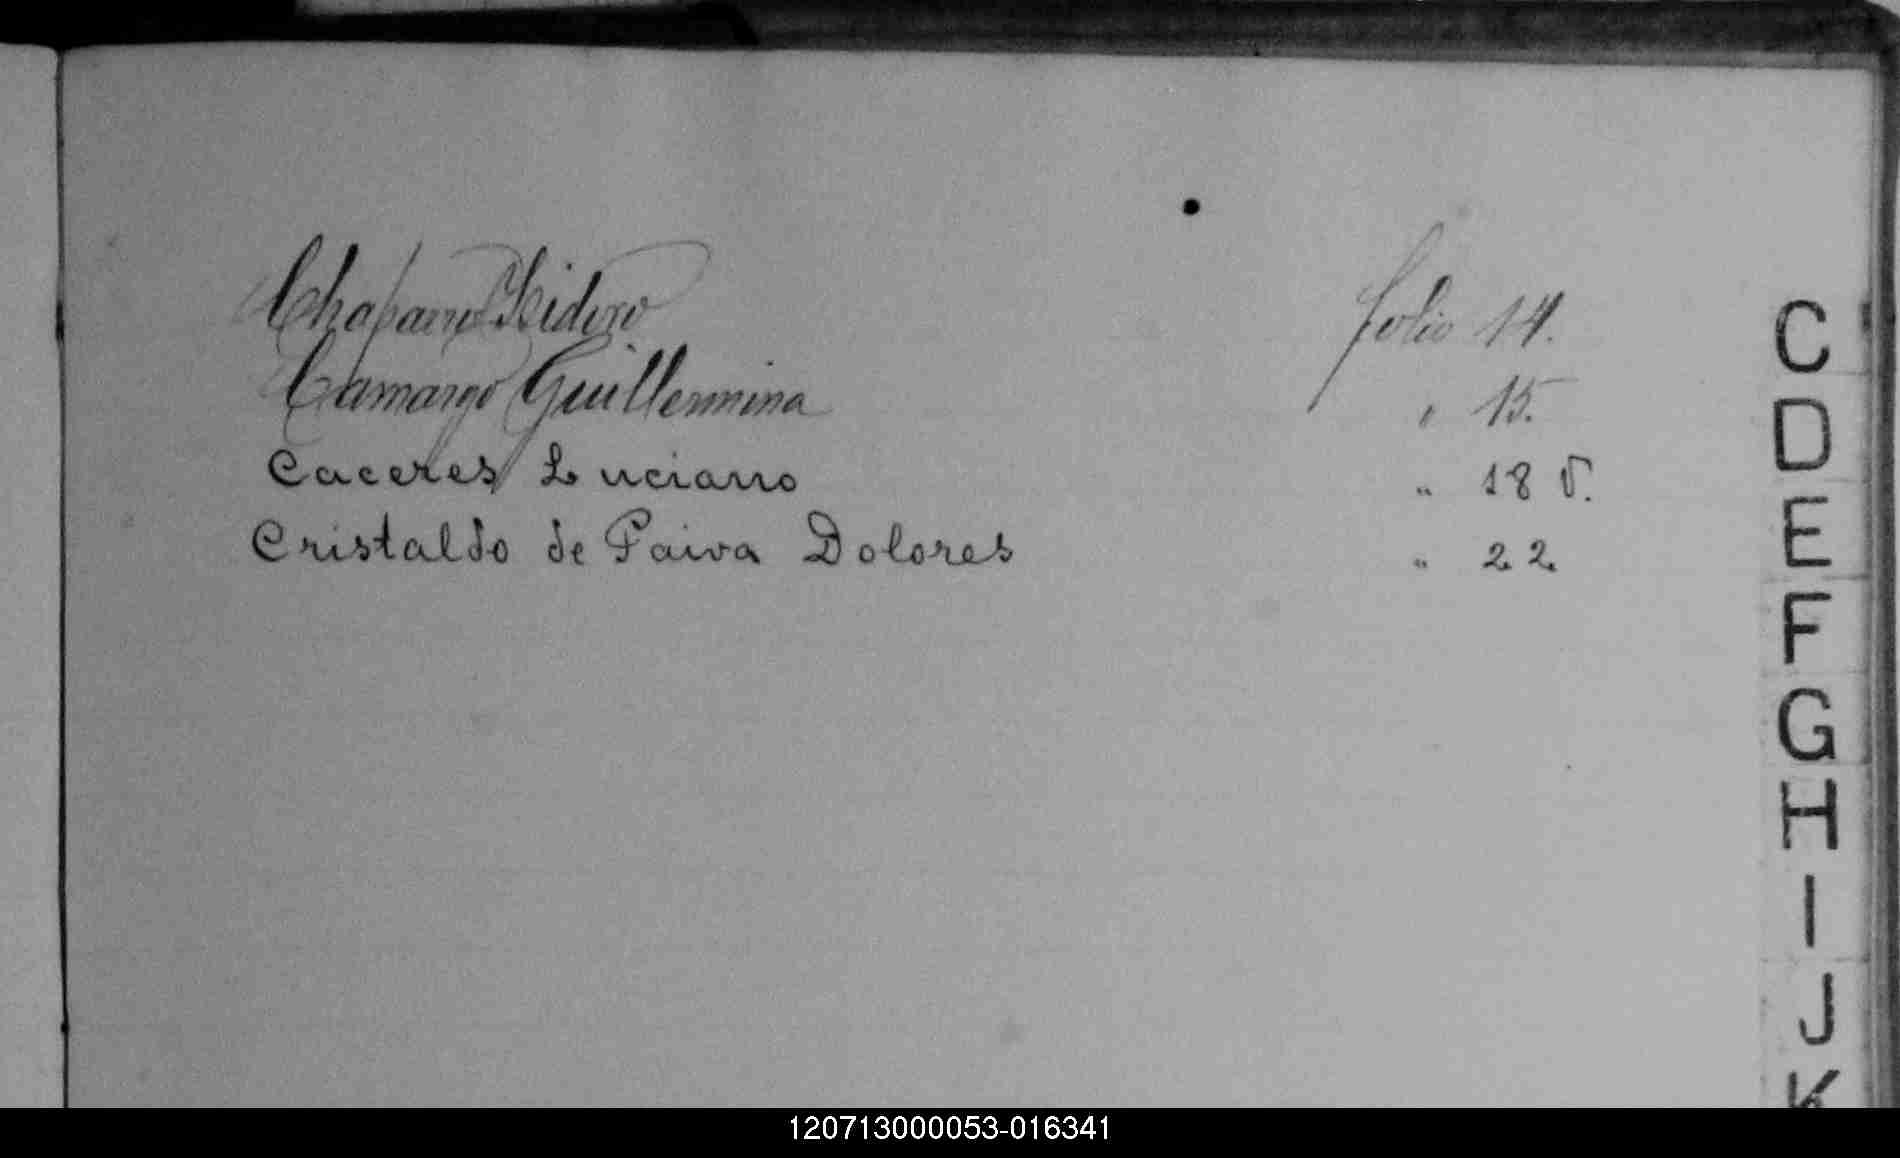 Chaparro Isidoro folio 14.
Camargo Guillermina " 15.
Caceres Luciano " 18 v.
Cristaldo de Paiva Dolores " 22
C
D
E
F
G
H
I
J
K
120713000053-016341